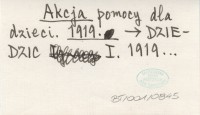 Akcja pomocy dla
dzieci. 1919. → DZIE-
DZIC I. 1919...
85/001/0845